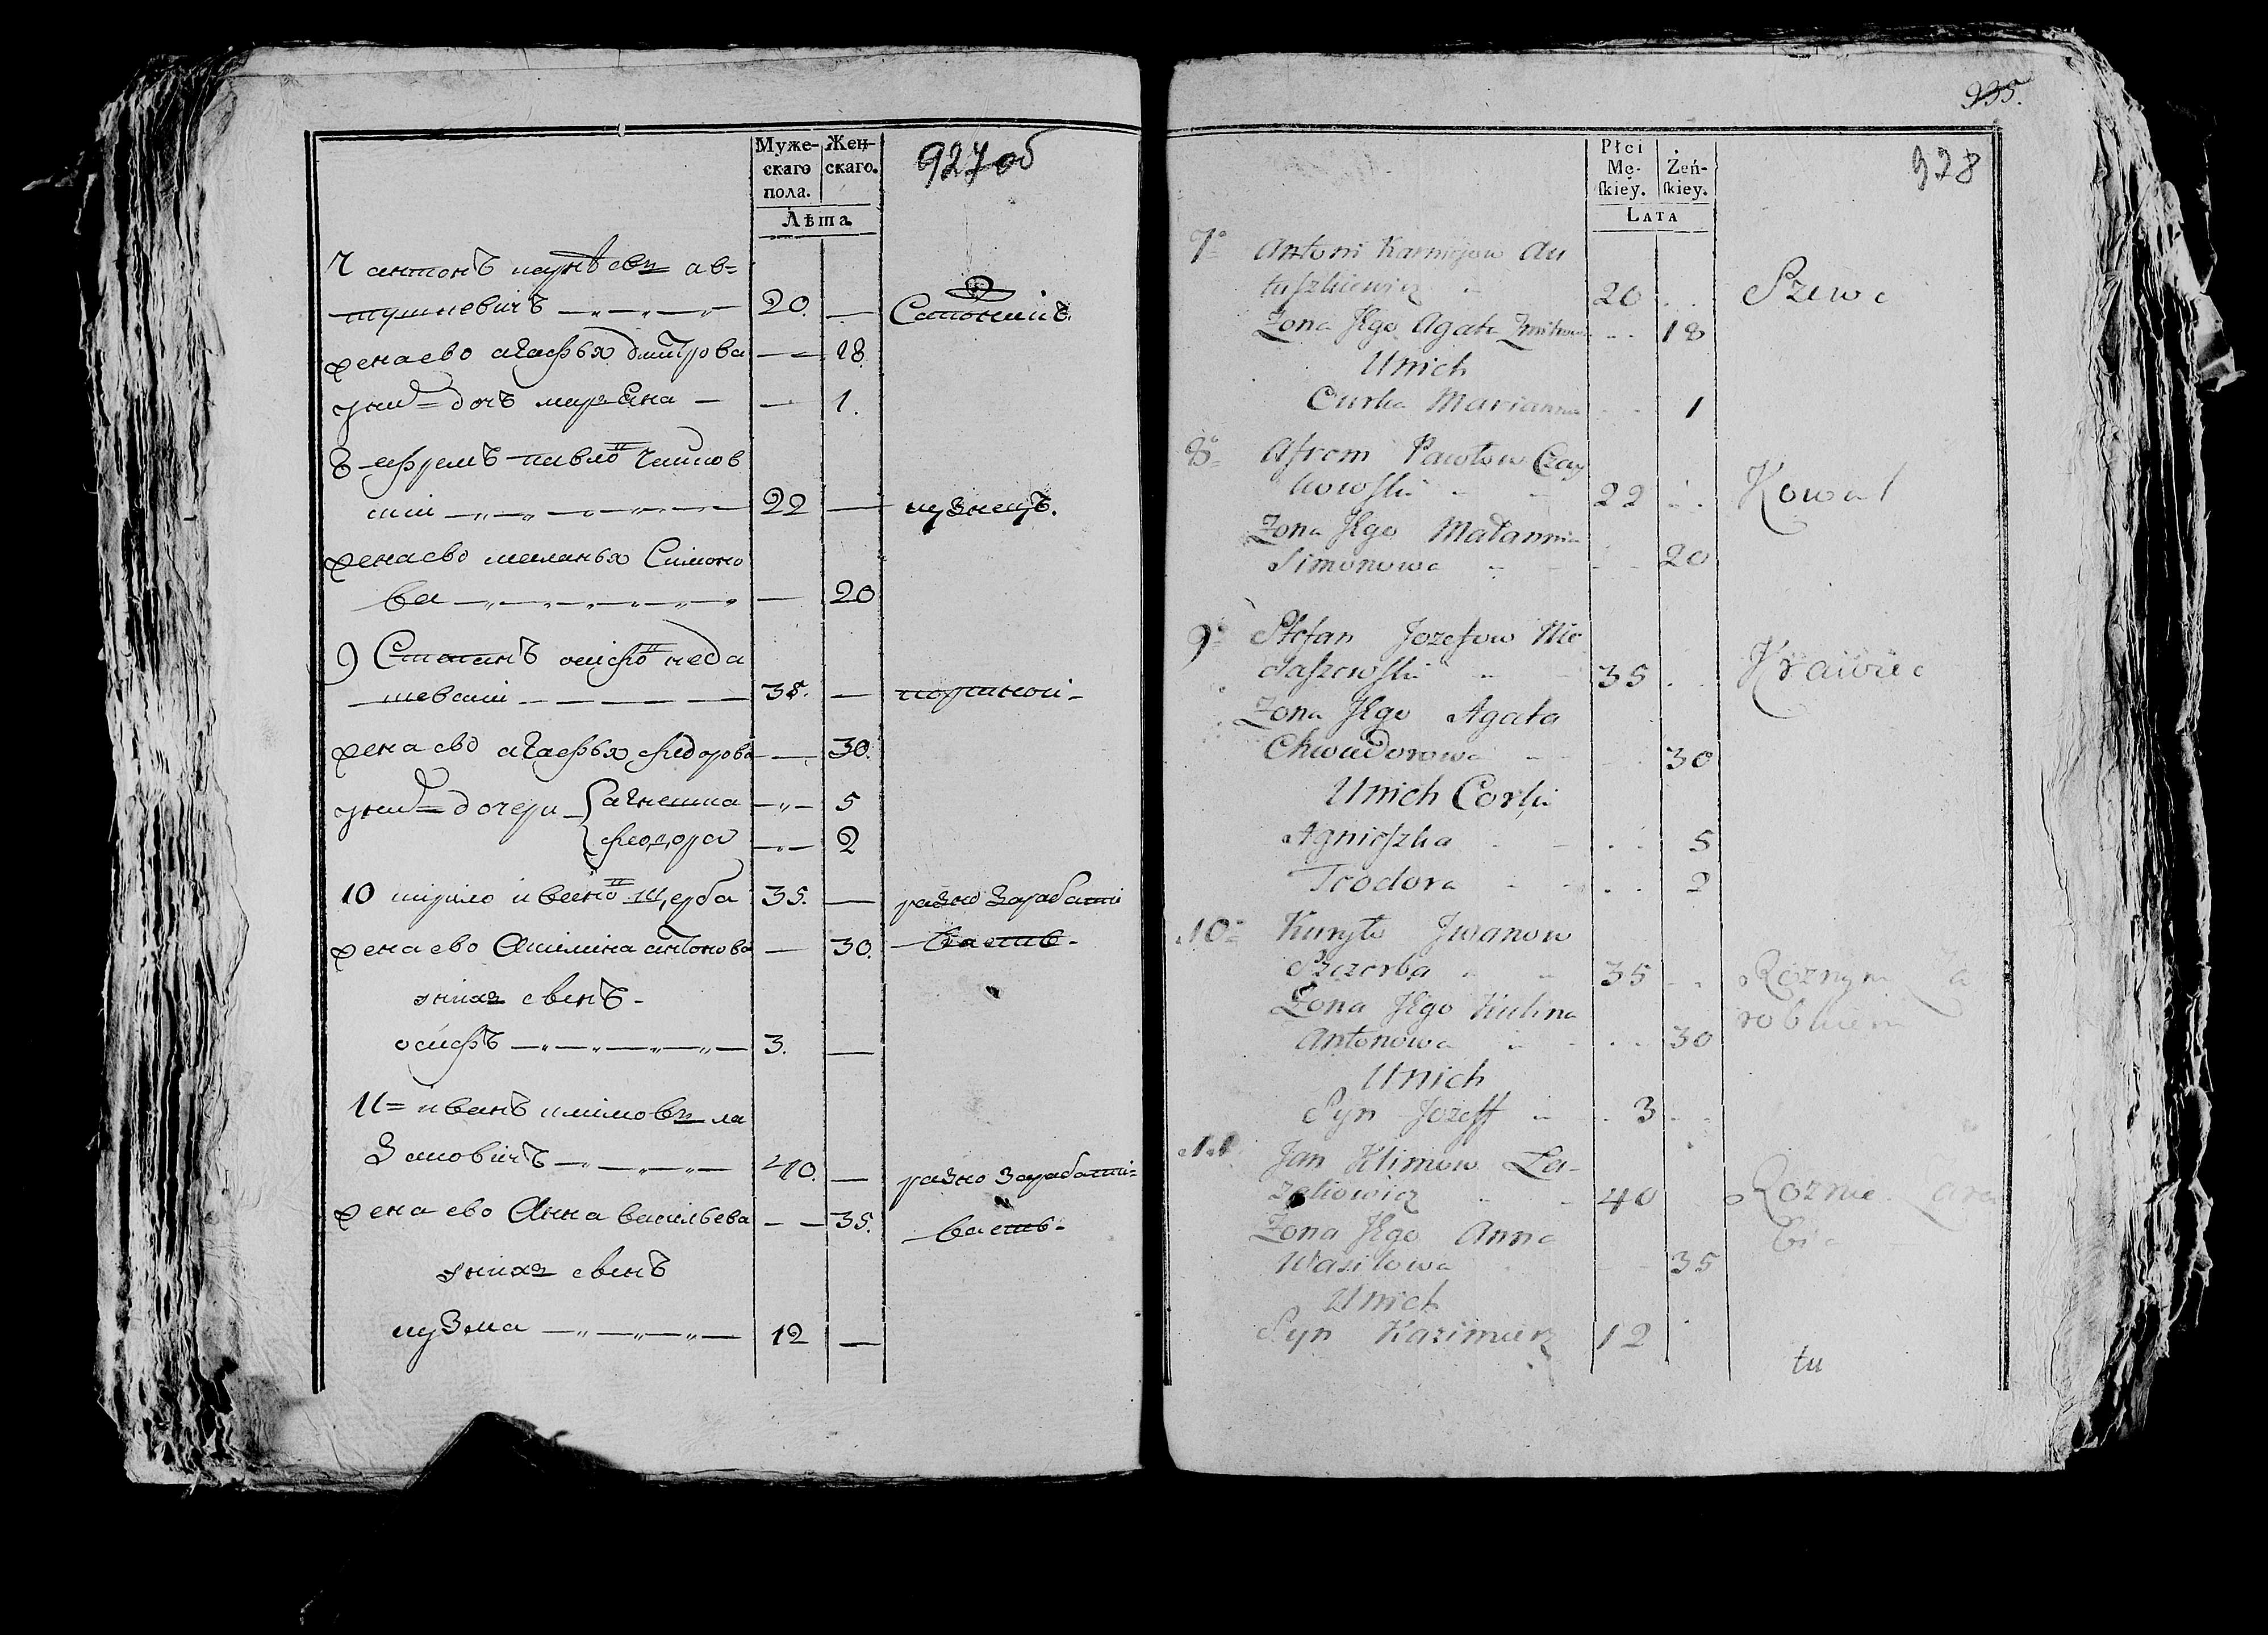 Муже-
скаго
пола.
Жен-
скаго.
927об
Лѣта
7 антонъ ав=
тушкевичъ 20. — Сапожникъ.
жена ево агафья дмитрова — 18.
у них дочь марьяна — 1.
8 ефремъ павлов чайков
ски 22 — кузнецъ.
жена ево меланья Симоно
ва — 20
9 Степанъ осифов неда
шевски 35. — портной
жена ево агафья федорова — 30.
у них дочери агнешка 5
феодора 2
10 кирило иванов щерба 35. — разно зарабати
жена ево Акилина антонова — 30. ваетъ.
у них сынъ
осифъ 3. —
11= иванъ климов ла
заковичъ 40. — разно зарабати=
жена ево Анна васильева — 35. ваетъ.
у них сынъ
кузма 12 —
935.
928
Płci
Mę-
ſkiey.
Żeń-
ſkiey.
LATA
7° Antoni Karniejow Au
tuszkiewicz 20 Szewc
Zona Jego Agata 18
Unich
Curka Marianna 1
8° Afrem Pawłow Czay
kowski 22 Kowal
Zona Jego Małannia
Simonowa 20
9° Stefan Jozefow Nie
daszewski 35 Krawiec
Zona Jego Agata
Chwiedorowa 30
Unich Corki
Agnieszka 5
Teodora 2
10° Kuryło Jwanow
Szczerba 35 Roznym Za
Zona Jego Kulina robkiem
Antonowa 30
Unich
Syn Jozeff 3
11° Jan Klimow La-
zakowicz 40 Roznie Zara
Zona Jego Anna bia
Wasilowa 35
Unich
Syn Kazimierz 12
tu